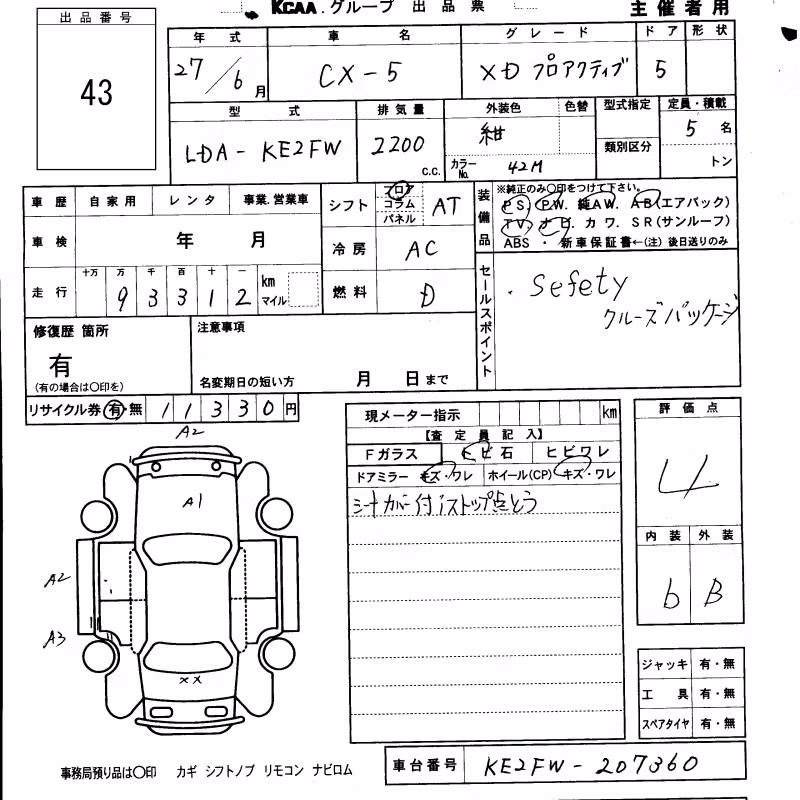 KCAA.グループ 出品票 主催者用
出品番号
43
年式 車名 グレード ドア 形状
27/6月 CX-5 XD プロアクティブ 5
型式 排気量 外装色 色替 型式指定 定員・積載
LDA-KE2FW 2200 C.C. 紺 類別区分 5名
カラーNo. 42M トン
車歴 自家用 レンタ 事業.営業車
車検 年 月
走行 十万 万 千 百 十 一
9 3 3 1 2 km マイル
シフト フロア コラム パネル AT
冷房 AC
燃料 D
装備品 ※純正のみ〇印をつけて下さい。
PS. PW. 純AW. AB(エアバック)
TV. ナビ. カワ. SR(サンルーフ)
ABS ・ 新車保証書←(注) 後日送りのみ
セールスポイント
. Sefety
クルーズパッケージ
修復歴 箇所
有
(有の場合は〇印を)
注意事項
名変期日の短い方 月 日まで
リサイクル券 有・無 11330円
現メーター指示 km
【査定員記入】
Fガラス トビ石 ヒビワレ
ドアミラー キズ・ワレ ホイール(CP) キズ・ワレ
シートカバー付 iストップ点とう
評価点
4
内装 外装
b B
A2
A1
A2
A3
XX
ジャッキ 有・無
工具 有・無
スペアタイヤ 有・無
事務局預り品は〇印 カギ シフトノブ リモコン ナビロム
車台番号 KE2FW-207360